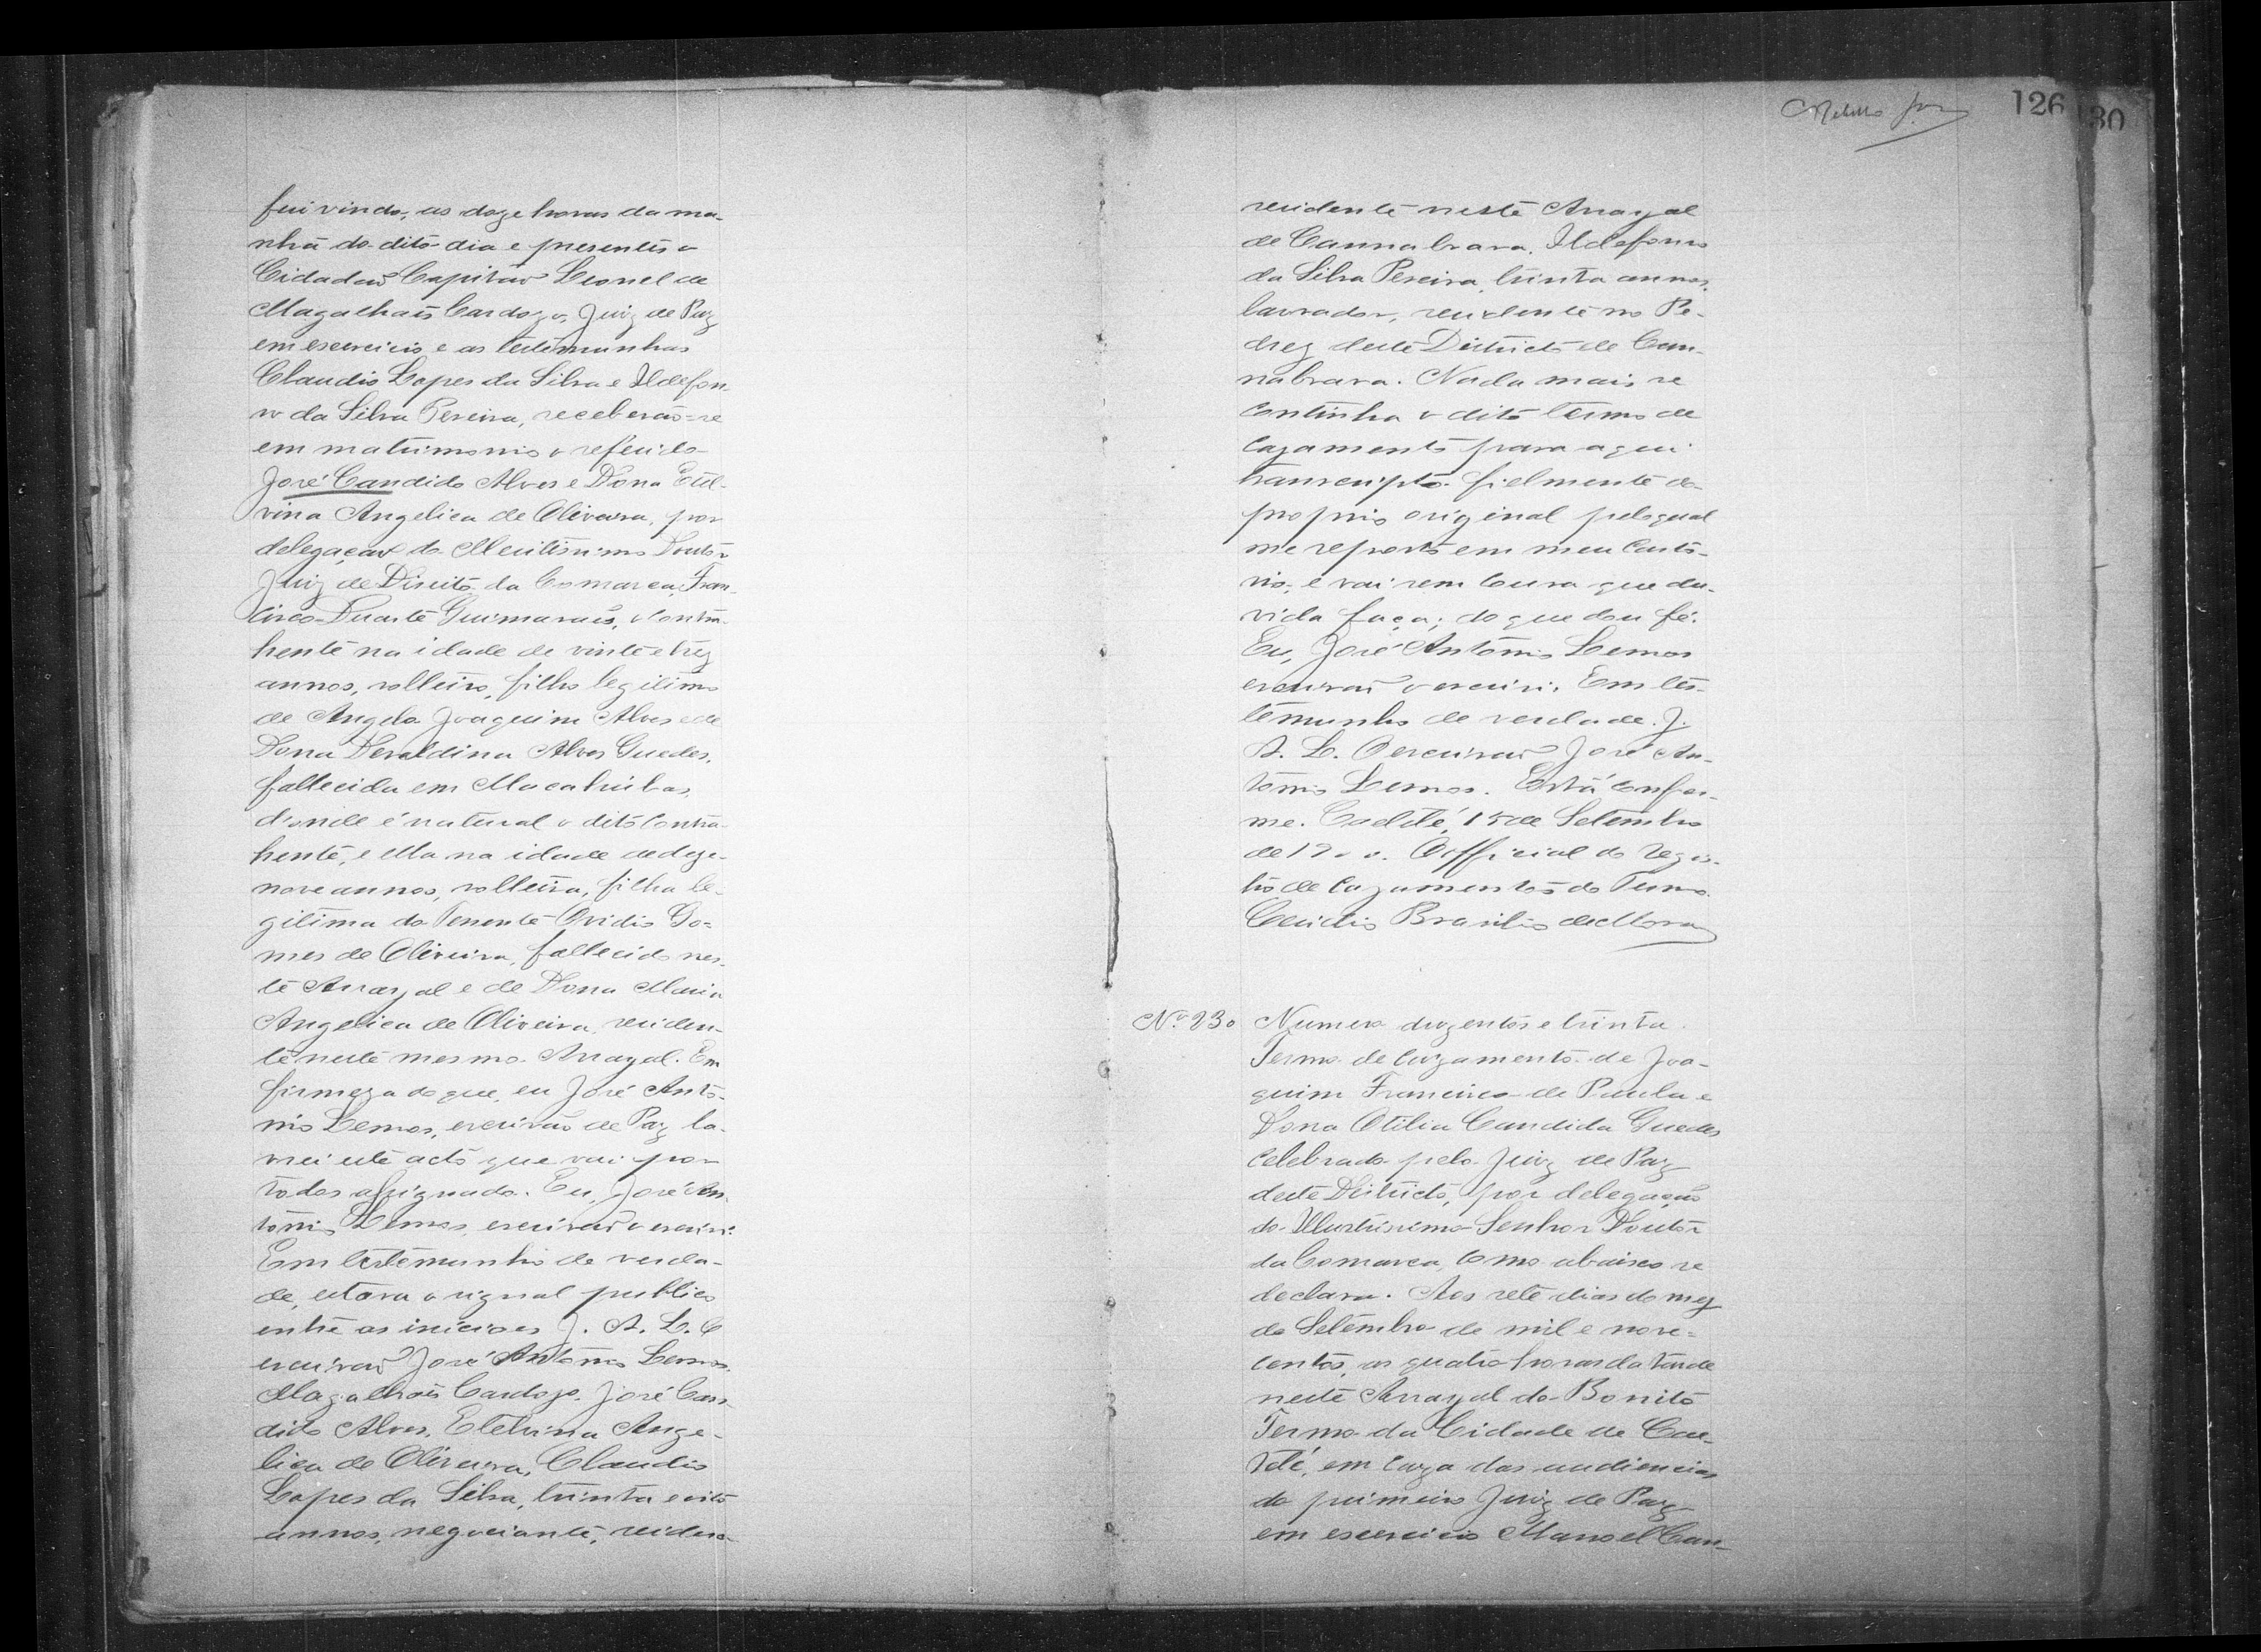 fui vindo, as doze horas da ma-
nhã do dito dia e presentes o
Cidadão Capitão Leonel de
Magalhaes Cardozo, Juiz de Paz
em exercicio e as testemunhas
Claudio Lopes da Silva e Ildefon-
so da Silva Pereira, receberão-se
em matrimonio o referido
José Candido Alves e Dona Etel-
vina Angelica de Oliveira, por
delegação do Meritissimo Doutor
Juiz de Direito da Comarca, Fran-
cisco Duarte Guimarães, o contra-
hente na idade de vinte e trez
annos, solteiro, filho legitimo
de Angelo Joaquim Alves e de
Dona Deraldina Alves Guedes,
fallecida em Macahubas,
d'onde é natural o dito contra-
hente, e ella na idade de deze-
nove annos, solteira, filha le-
gitima do Tenente Ovidio Go-
mes de Oliveira, fallecido nes-
te Arrayal e de Dona Maria
Angelica de Oliveira, residen-
te neste mesmo Arrayal. Em
firmeza do que, eu José Anto-
nio Lemos, escrivão de Paz la-
vrei este acto que vai por
todos assignado. Eu, José An-
tonio Lemos, escrivão o escrivi.
Em testemunho de verda-
de, estava o signal publico
entre as iniciaes J. A. L. O
escrivão José Antonio Lemos.
Magalhaes Cardozo. José Can-
dido Alves. Etelvina Ange-
lica de Oliveira, Claudio
Lopes da Silva, trinta e oito
annos, negociante, residen-
126
130
residente neste Arrayal
de Cannabrava. Ildefonso
da Silva Pereira, trinta annos,
lavrador, residente no Pe-
drez deste Districto de Can-
nabrava. Nada mais se
continha o dito termo de
cazamento para aqui
transcripto fielmente do
proprio original pelo qual
me reporto em meu Carto-
rio, e vai sem couza que du-
vida faça; do que dou fé.
Eu, José Antonio Lemos
escrivão o escrivi. Em tes-
temunho de verdade. J.
A. L. O escrivão José An-
tonio Lemos. Está confor-
me. Caetité, 15 de Setembro
de 1900. O official do regis-
tro de cazamentos do Termo
Brasilio de Moura
Nº 230 Numero duzentos e trinta.
Termo de cazamento de Joa-
quim Francisco de Paula e
Dona Otilia Candida Guedes
celebrado pelo Juiz de Paz
deste Districto, por delegação
do Illustrissimo Senhor Doutor
da Comarca, como abaixo se
declara. Aos sete dias do mez
de Setembro de mil e nove-
centos, as quatro horas da tarde
neste Arrayal do Bonito
Termo da Cidade de Cae-
teté, em caza das audiencias
do primeiro Juiz de Paz
em exercicio Manoel Can-